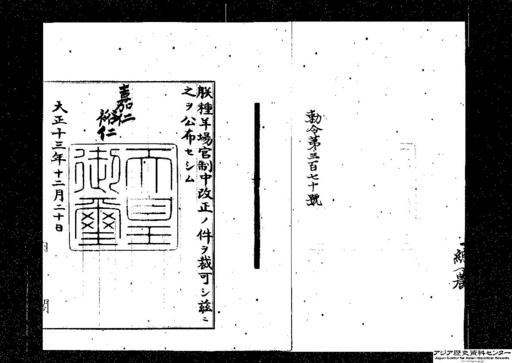 勅令第三百七十號
朕種羊場官制中改正ノ件ヲ裁可シ茲ニ
之ヲ公布セシム
嘉仁
裕仁
天皇御璽
大正十三年十二月二十日
内閣
アジア歴史資料センター
Japan Center for Asian Historical Records